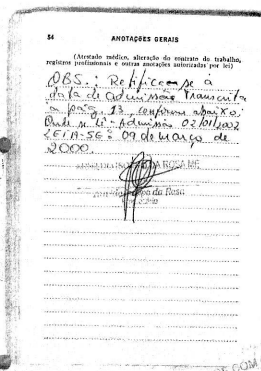 54 ANOTAÇÕES GERAIS
(Atestado médico, alteração do contrato do trabalho,
registros profissionais e outras anotações autorizadas por lei)
OBS.: Retifica-se à
data de admissão transcrita
a pág. 13 conforme abaixo:
Onde se lê - Admissão 02/01/2002
LEIA-SE: 09 de março de
2000
DA ROSA ME
da Rosa